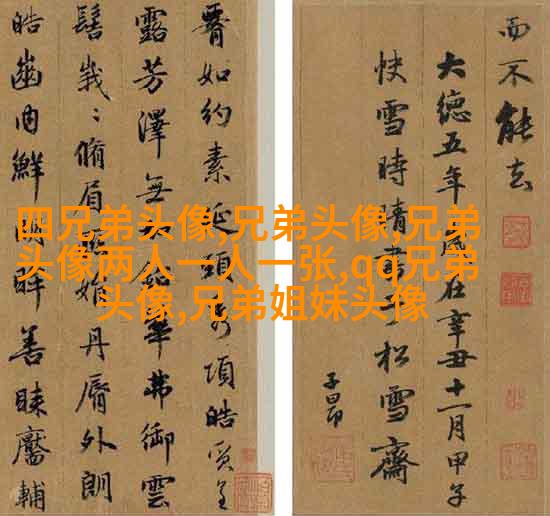 四兄弟头像,兄弟头像,兄弟
头像两人一人一张,qq兄弟
头像,兄弟姐妹头像
如約素延頸秀項皓質呈
露芳澤無加鉛華弗御雲
髻峩〻脩眉聯娟丹脣外朗
皓齒内鮮明眸善睞靨輔
而不能去
大德五年歲在辛丑十一月甲子
快雪時晴書于松雪齋
子昂